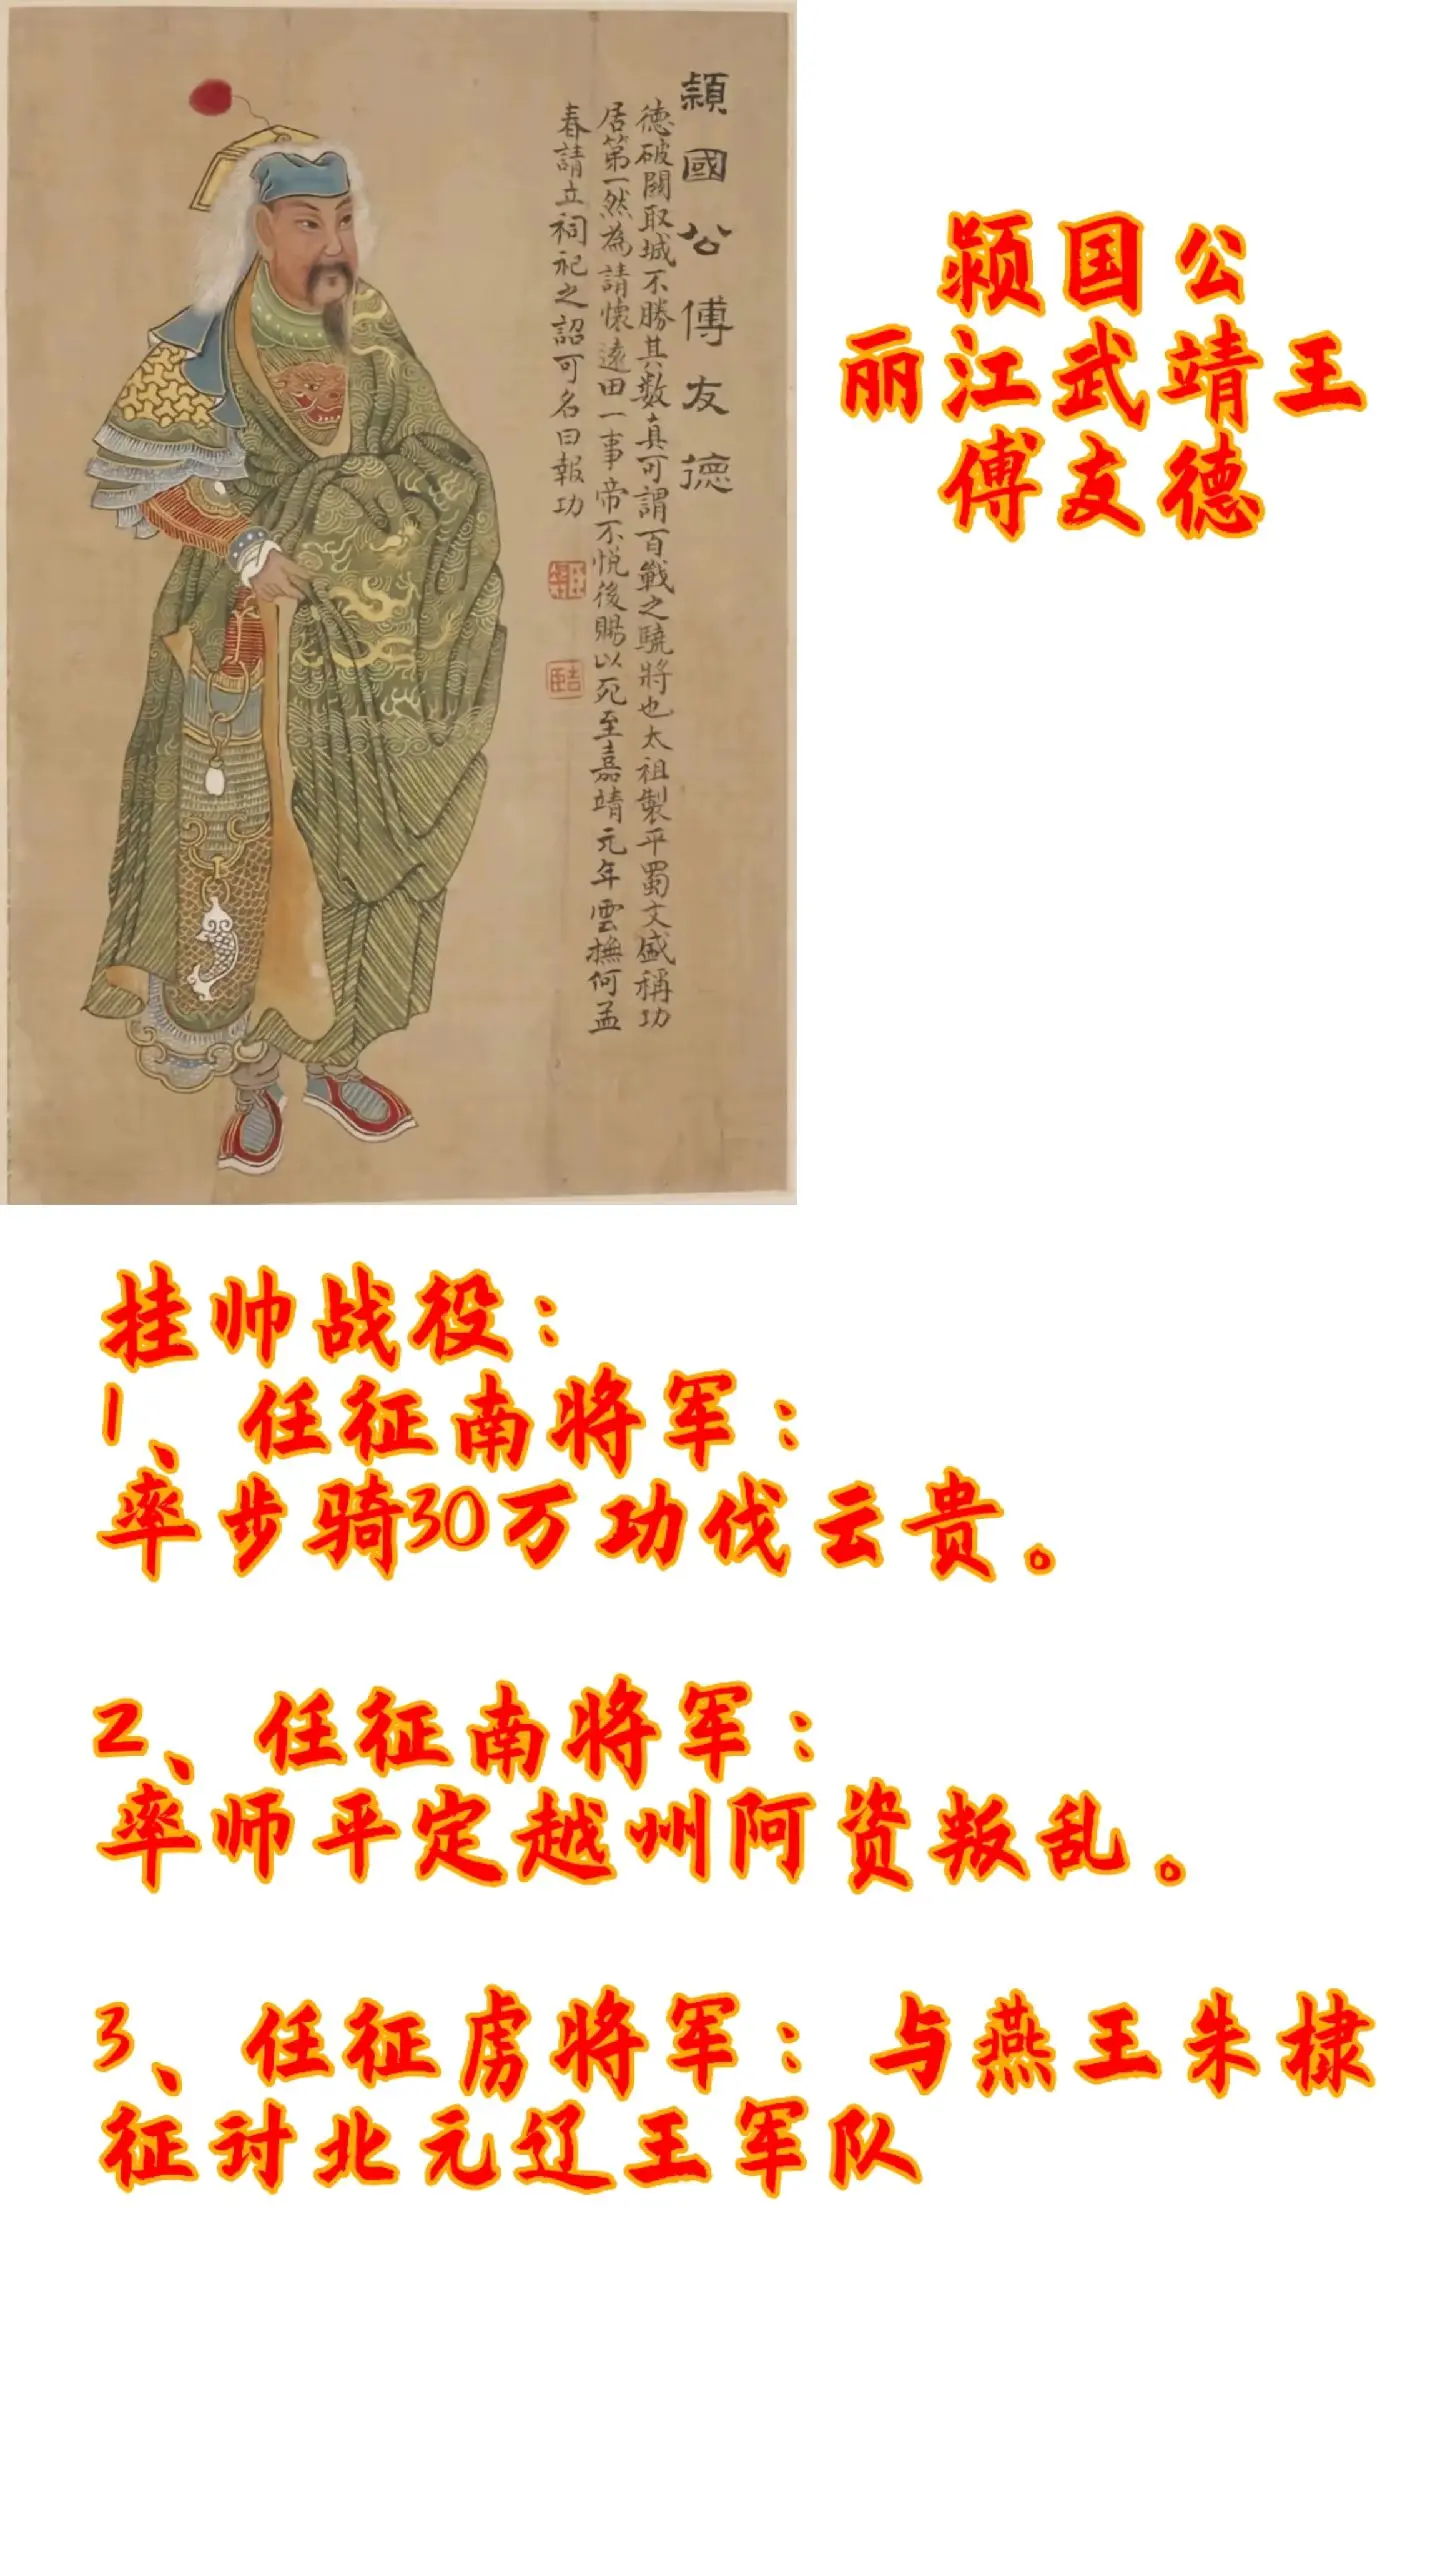 穎國公傅友德
德破關取城不勝其數真可謂百戰之驍將也太祖製平蜀文盛稱功
居第一然為請懷遠田一事帝不悅後賜以死至嘉靖元年雲撫何孟
春請立祠祀之詔可名曰報功
颍国公
丽江武靖王
傅友德
挂帅战役：
1、任征南将军：
率步骑30万功伐云贵。
2、任征南将军：
率师平定越州阿资叛乱。
3、任征虏将军：与燕王朱棣
征讨北元辽王军队